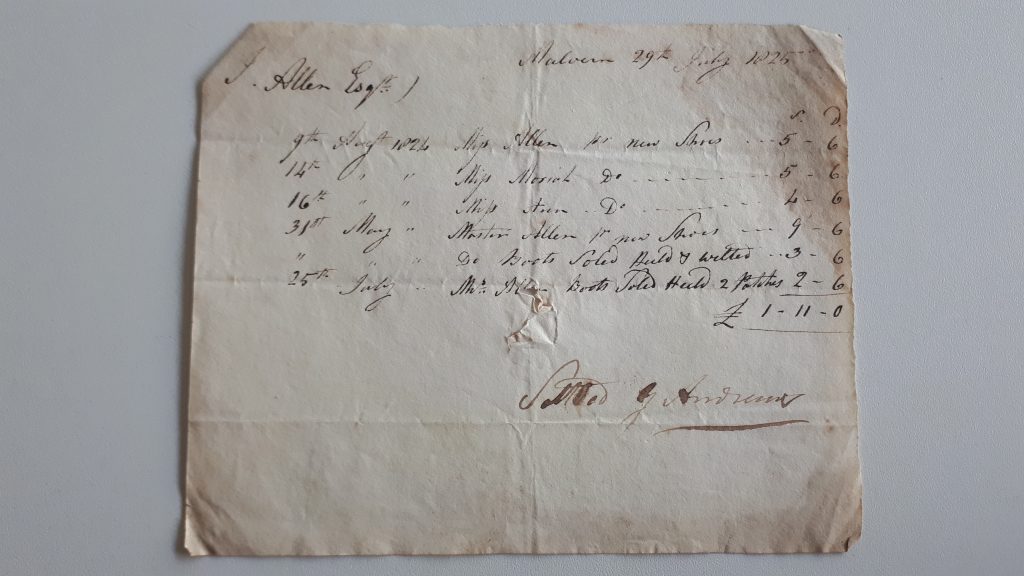 Malvern 29th July 1825
J. Allen Esqr. )
S. D
9th Augt 1824 Miss Allen pr new Shoes ... 5 - 6
14th " " Miss Moriah Do ... 5 - 6
16th " " Miss Ann Do ... 4 - 6
31st May " Master Allen pr new Shoes ... 9 - 6
" " " Do Boots Soled Heeld & welted ... 3 - 6
25th July " Mr. Allen Boots Soled Heeld 2 Patches 2 - 6
£ 1 - 11 - 0
Settled G Andrews